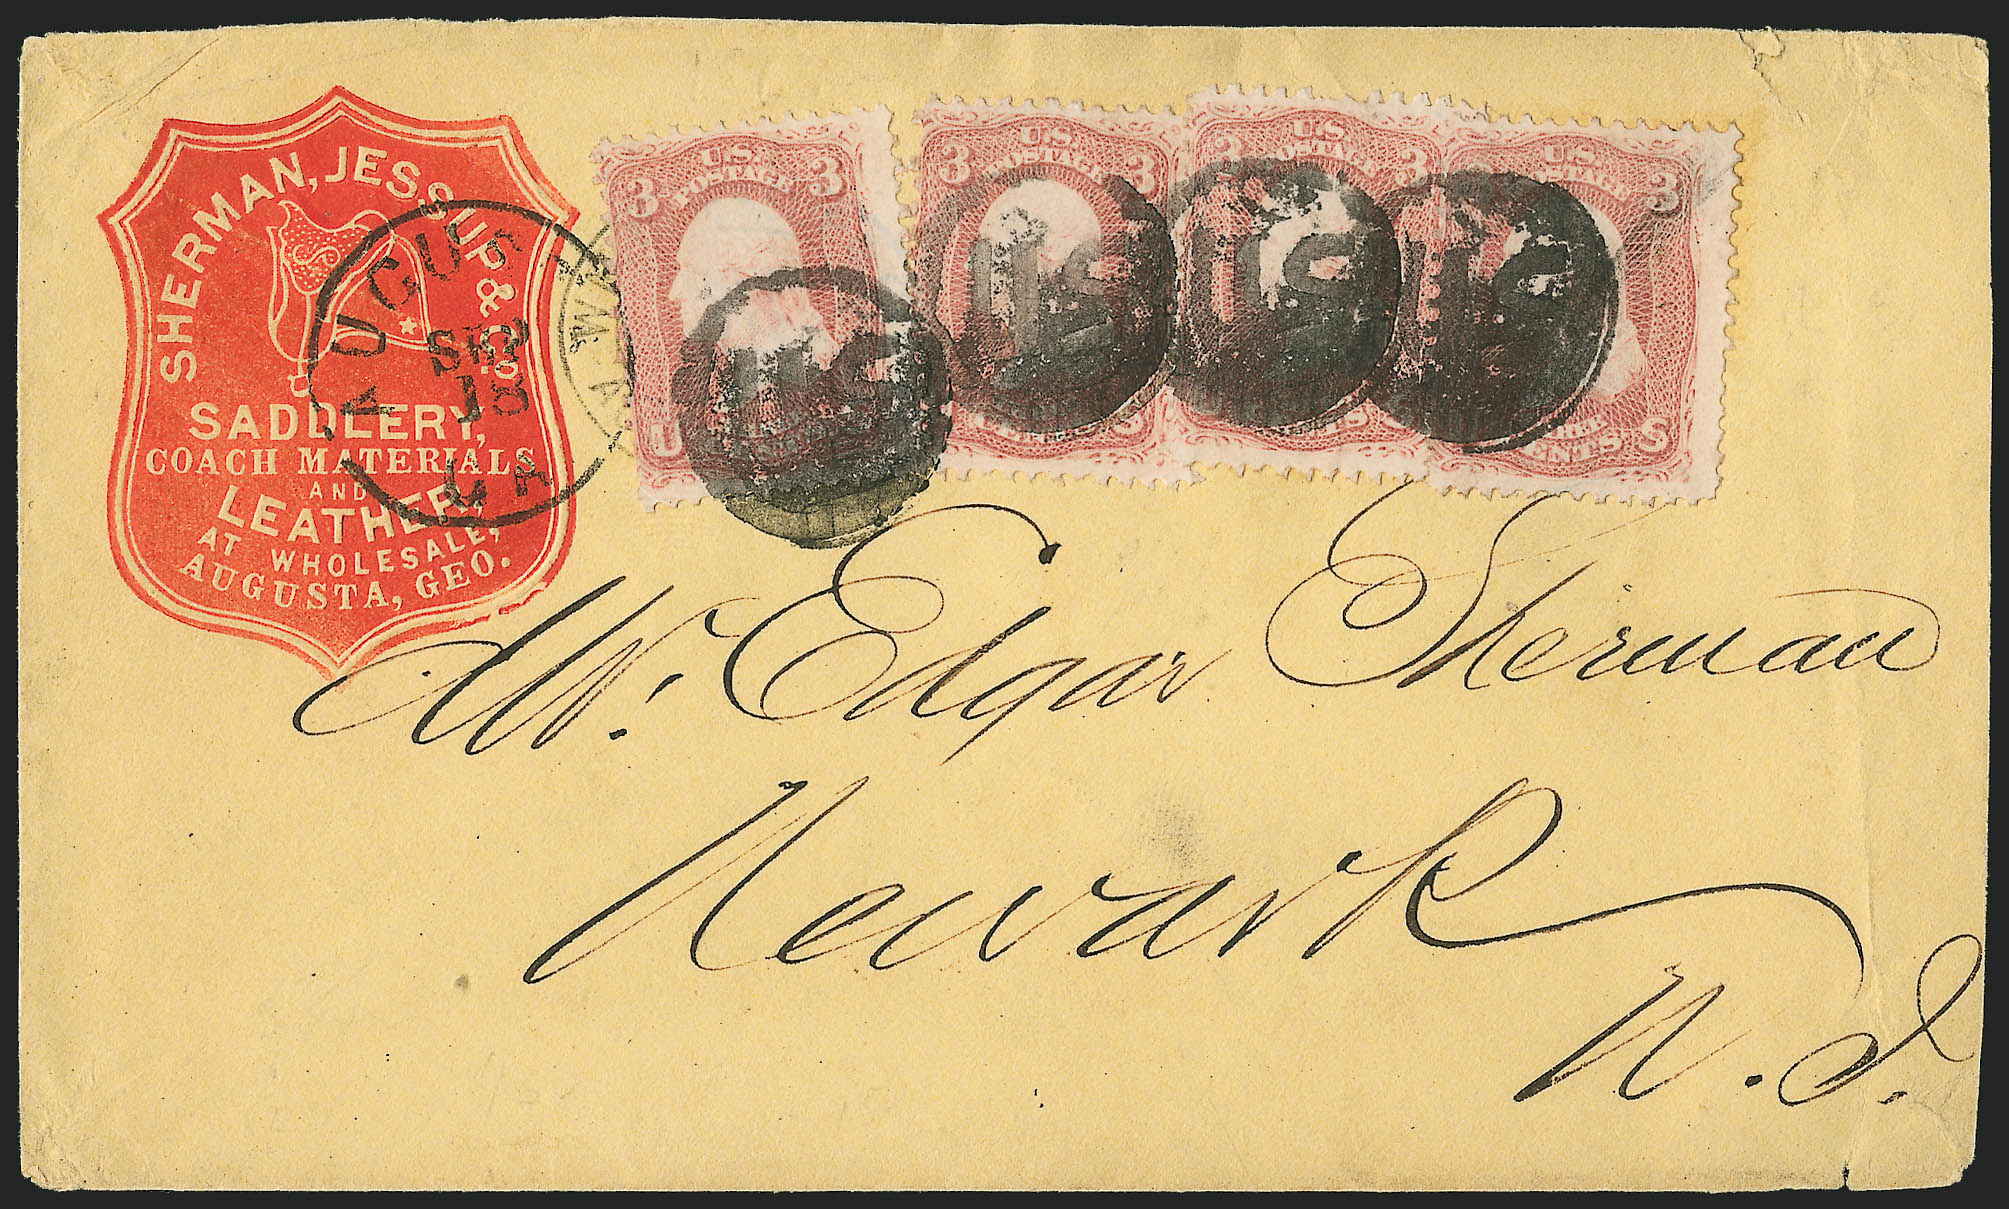 SHERMAN, JESSUP & Co.
SADDLERY,
COACH MATERIALS
AND
LEATHER,
AT WHOLESALE,
AUGUSTA, GEO.
AUGUSTA
SEP
18
GA
U.S.
POSTAGE
3 3
US
U.S.
POSTAGE
3 3
US
U.S.
POSTAGE
3 3
US
U.S.
POSTAGE
3
CENTS
US
Mr. Edgar Sherman
Newark
N. J.